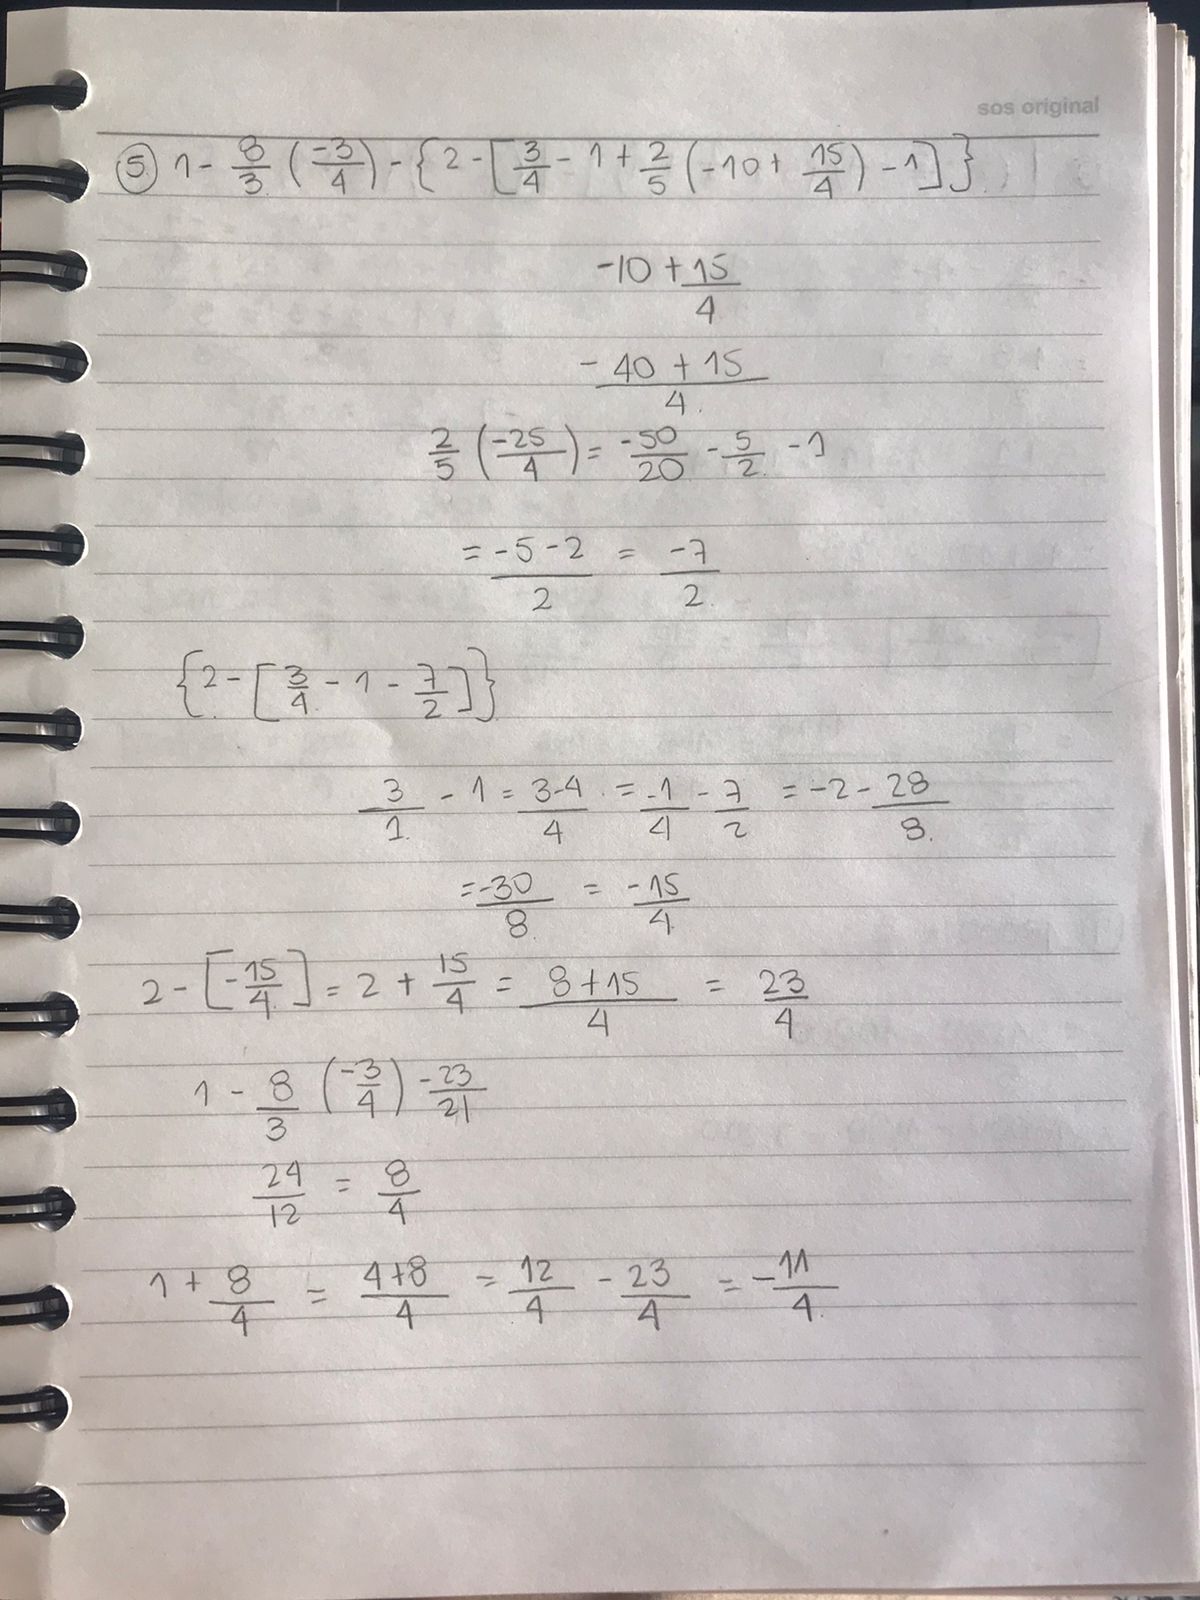 sos original
5. 1 - 8/3 (-3/4) - {2 - [3/4 - 1 + 2/5 (-10 + 15/4) - 1]}
-10 + 15/4
-40 + 15/4.
2/5 (-25/4) = -50/20 - 5/2 - 1
= -5-2/2 = -7/2.
{2 - [3/4 - 1 - 7/2]}
3/1 - 1 = 3-4/4 = -1/4 - 7/2 = -2 - 28/8.
= -30/8 = -15/4
2 - [-15/4] = 2 + 15/4 = 8+15/4 = 23/4
1 - 8/3 (-3/4) - 23/21
24/12 = 8/4
1 + 8/4 = 4+8/4 = 12/4 - 23/4 = -11/4.